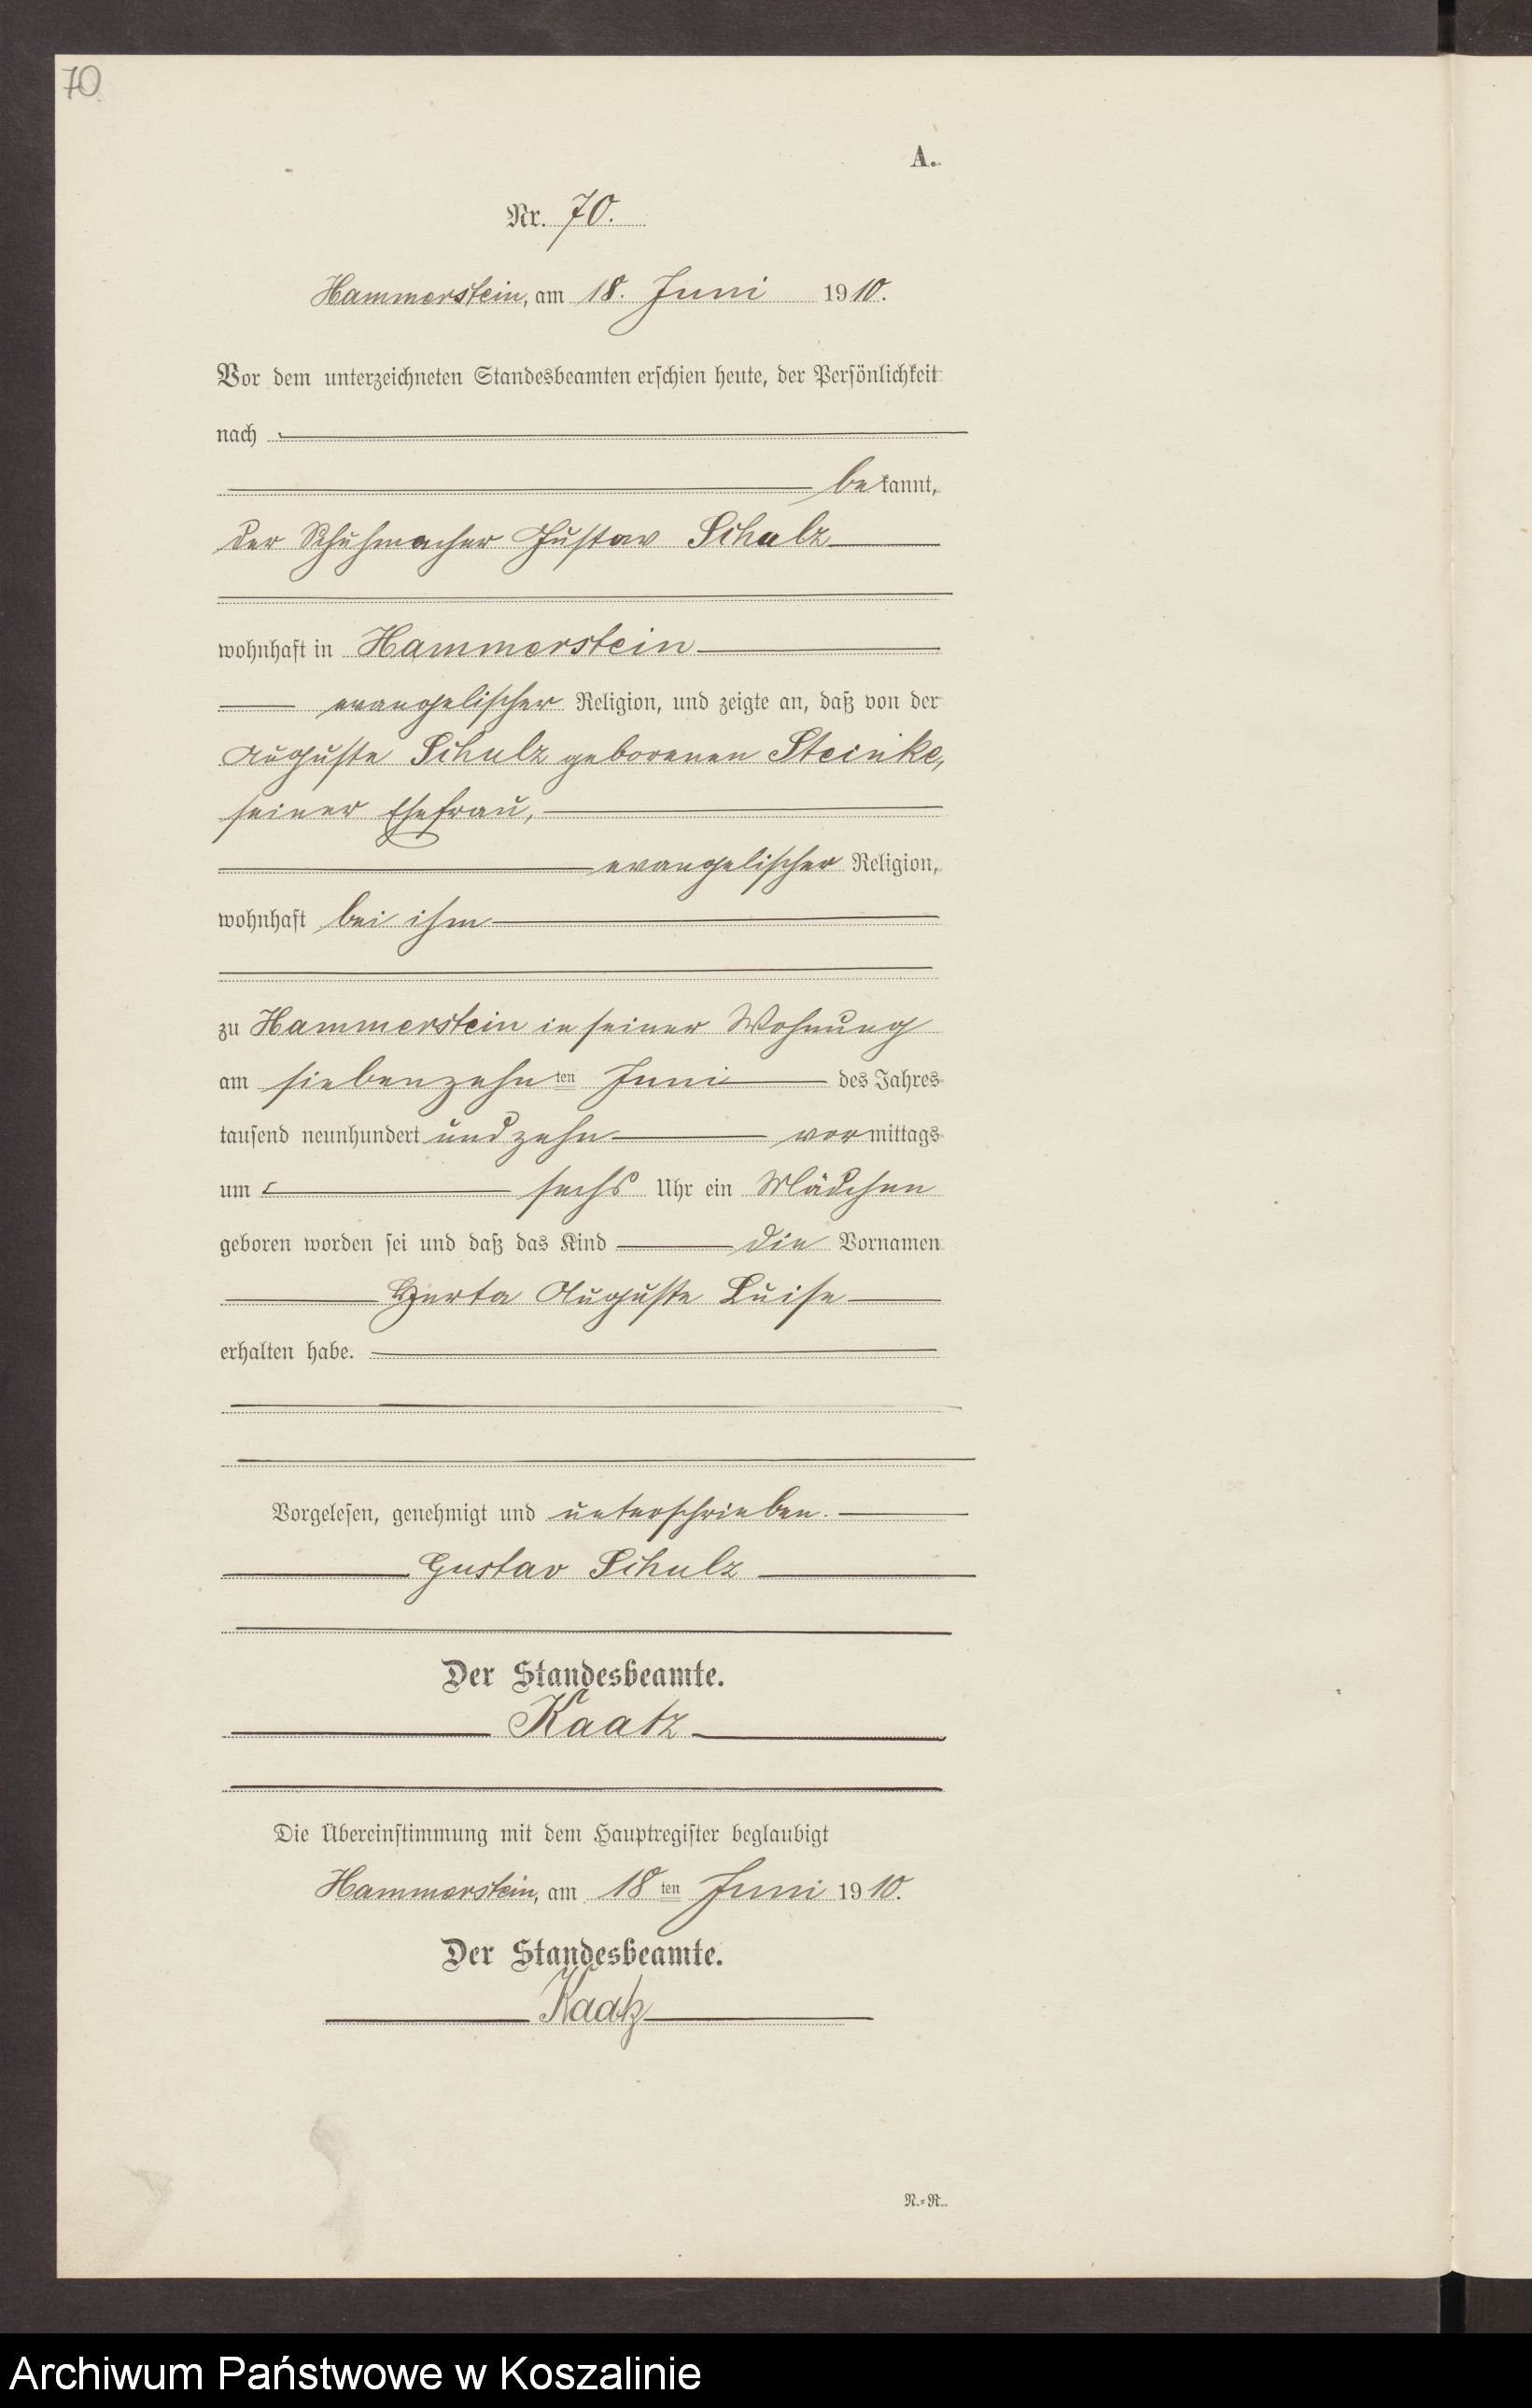 70
A.
Nr. 70.
Hammerstein, am 18. Juni 1910.
Vor dem unterzeichneten Standesbeamten erschien heute, der Persönlichkeit
nach
bekannt,
der Schuhmacher Gustav Schulz
wohnhaft in Hammerstein
evangelischer Religion, und zeigte an, daß von der
Auguste Schulz geborenen Steinke,
seiner Ehefrau,
evangelischer Religion,
wohnhaft bei ihm
zu Hammerstein in seiner Wohnung
am siebenzehn ten Juni des Jahres
tausend neunhundert und zehn vormittags
um sechs Uhr ein Mädchen
geboren worden sei und daß das Kind die Vornamen
Herta Auguste Luise
erhalten habe.
Vorgelesen, genehmigt und unterschrieben.
Gustav Schulz
Der Standesbeamte.
Kaatz
Die Übereinstimmung mit dem Hauptregister beglaubigt
Hammerstein, am 18 ten Juni 1910.
Der Standesbeamte.
Kaatz
N.=R.
Archiwum Państwowe w Koszalinie